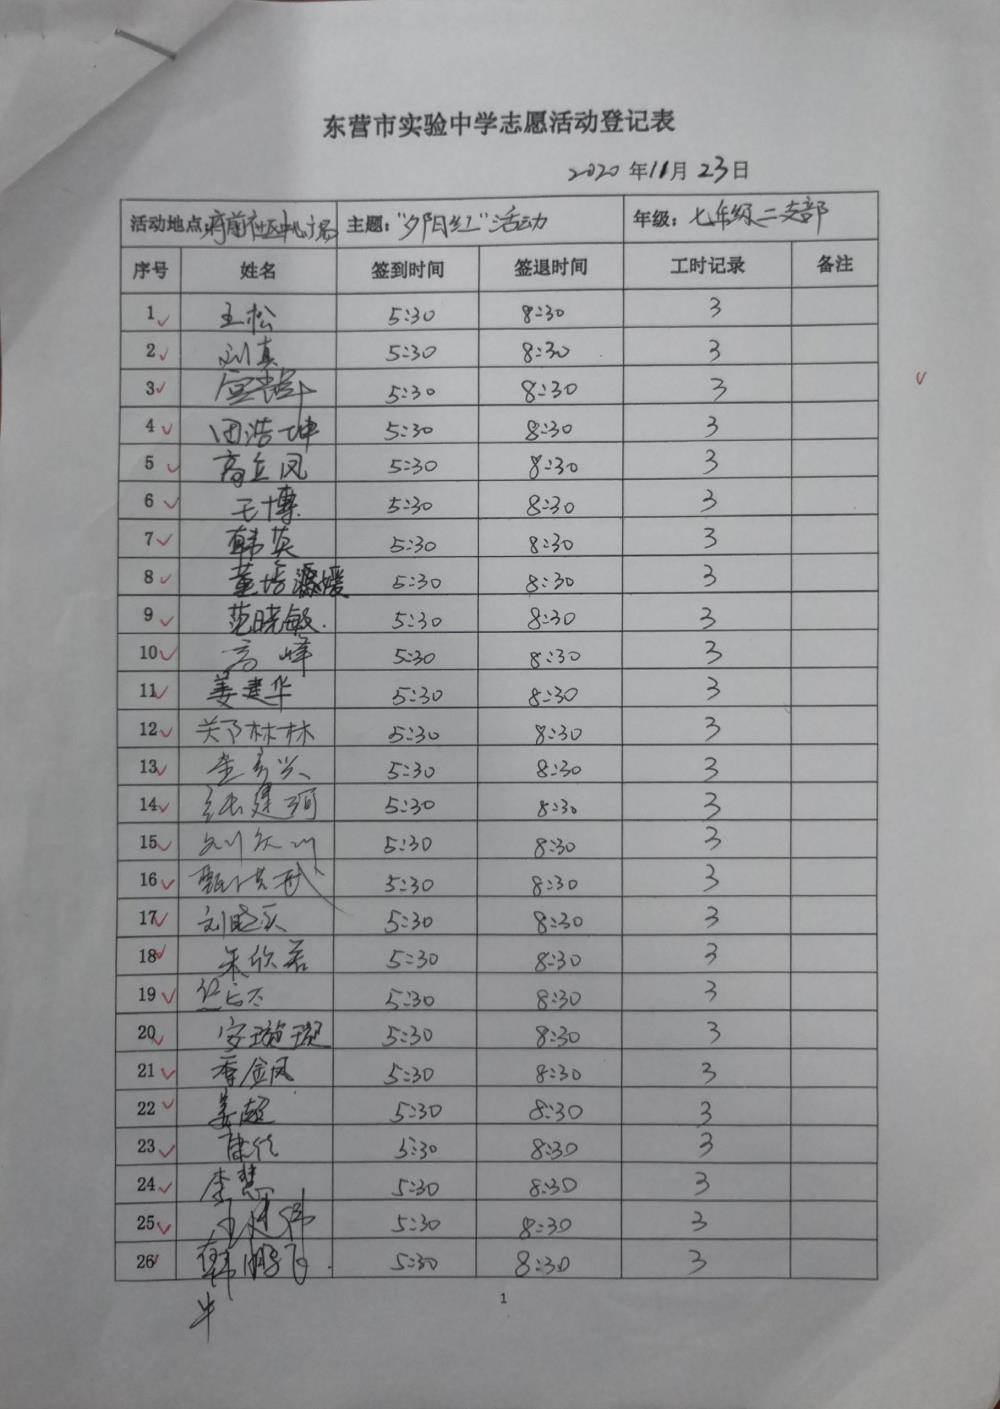 东营市实验中学志愿活动登记表
2020年11月23日
活动地点:府前社区中心广场 主题:“夕阳红”活动 年级:七年级二支部
序号 姓名 签到时间 签退时间 工时记录 备注
1 王松 5:30 8:30 3
2 刘真 5:30 8:30 3
3 5:30 8:30 3
4 田浩坤 5:30 8:30 3
5 高立凤 5:30 8:30 3
6 王博 5:30 8:30 3
7 韩英 5:30 8:30 3
8 董培源媛 5:30 8:30 3
9 范晓敏 5:30 8:30 3
10 高峰 5:30 8:30 3
11 姜建华 5:30 8:30 3
12 郑林林 5:30 8:30 3
13 5:30 8:30 3
14 张建河 5:30 8:30 3
15 5:30 8:30 3
16 5:30 8:30 3
17 刘晓庆 5:30 8:30 3
18 朱欣若 5:30 8:30 3
19 5:30 8:30 3
20 安璇璇 5:30 8:30 3
21 季金凤 5:30 8:30 3
22 姜超 5:30 8:30 3
23 陈佳 5:30 8:30 3
24 李慧 5:30 8:30 3
25 王建伟 5:30 8:30 3
26 韩鹏飞 5:30 8:30 3
1